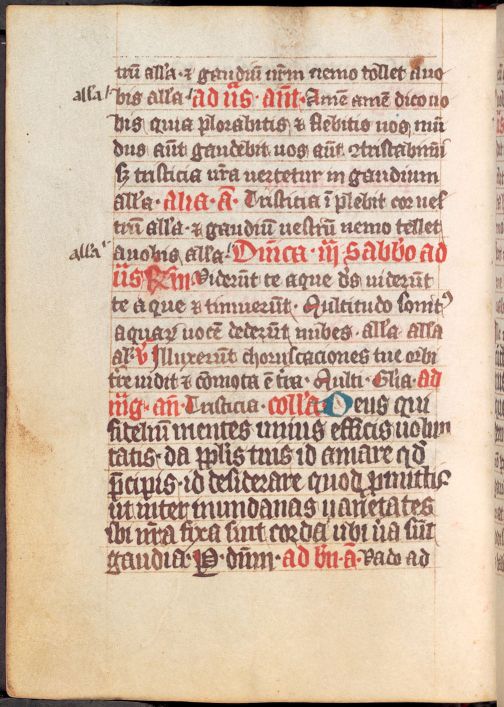 trū all'a · ⁊ gaudiū nr̄m nemo tollet auo
all'a bis all'a · ad v̄s · an̄t · Amē amē dico uo
bis quia plorabitis ⁊ flebitis uos mū
dus aūt gaudebit uos aūt ɔtristabimī
sʒ tristicia vr̄a uertetur in gaudium
all'a · alia · a᷒ · Tristicia īplebit cor ues
trū all'a · ⁊ gaudiū uestrū nemo tollet
all'a auobis all'a Dn̄ica · iij sabbo ad
v̄s Rm̄ Viderūt te aque ds̄ uiderūt
te aque ⁊ timuerūt · Multitudo sonitꝰ
aquaꝝ uocē dederūt nubes · all'a all'a
all' v̄ Illuxerūt choruscaciones tue orbi
tre uidit ⁊ cōmota ē tr̄a · Multi · Glia · ad
mḡ · an̄ · Tristicia · coll'a Deus qui
fidelium mentes unius efficis uolun
tatis · da pplis tuis id amare qd̄
p̄cipis · id desiderare quod promittis
ut inter mundanas uarietates
ibi nr̄a fixa sint corda ubi ūa sūt
gaudia · P · dn̄m · ad bn̄ · a᷒ · Vado ad